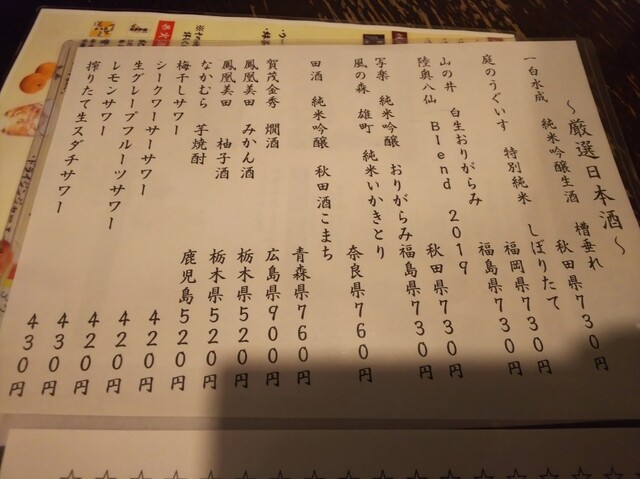 ～厳選日本酒～
一白水成 純米吟醸生酒 槽垂れ
秋田県730円
庭のうぐいす 特別純米 しぼりたて
福岡県730円
山の井 白生おりがらみ
福島県730円
陸奥八仙 Blend 2019
秋田県730円
写楽 純米吟醸 おりがらみ
福島県730円
風の森 雄町 純米いかきとり
奈良県760円
田酒 純米吟醸 秋田酒こまち
青森県760円
賀茂金秀 燗酒 広島県900円
鳳凰美田 みかん酒 栃木県520円
鳳凰美田 柚子酒 栃木県520円
なかむら 芋焼酎 鹿児島520円
梅干しサワー 420円
シークワーサーサワー 420円
生グレープフルーツサワー 420円
レモンサワー 430円
搾りたて生スダチサワー 430円